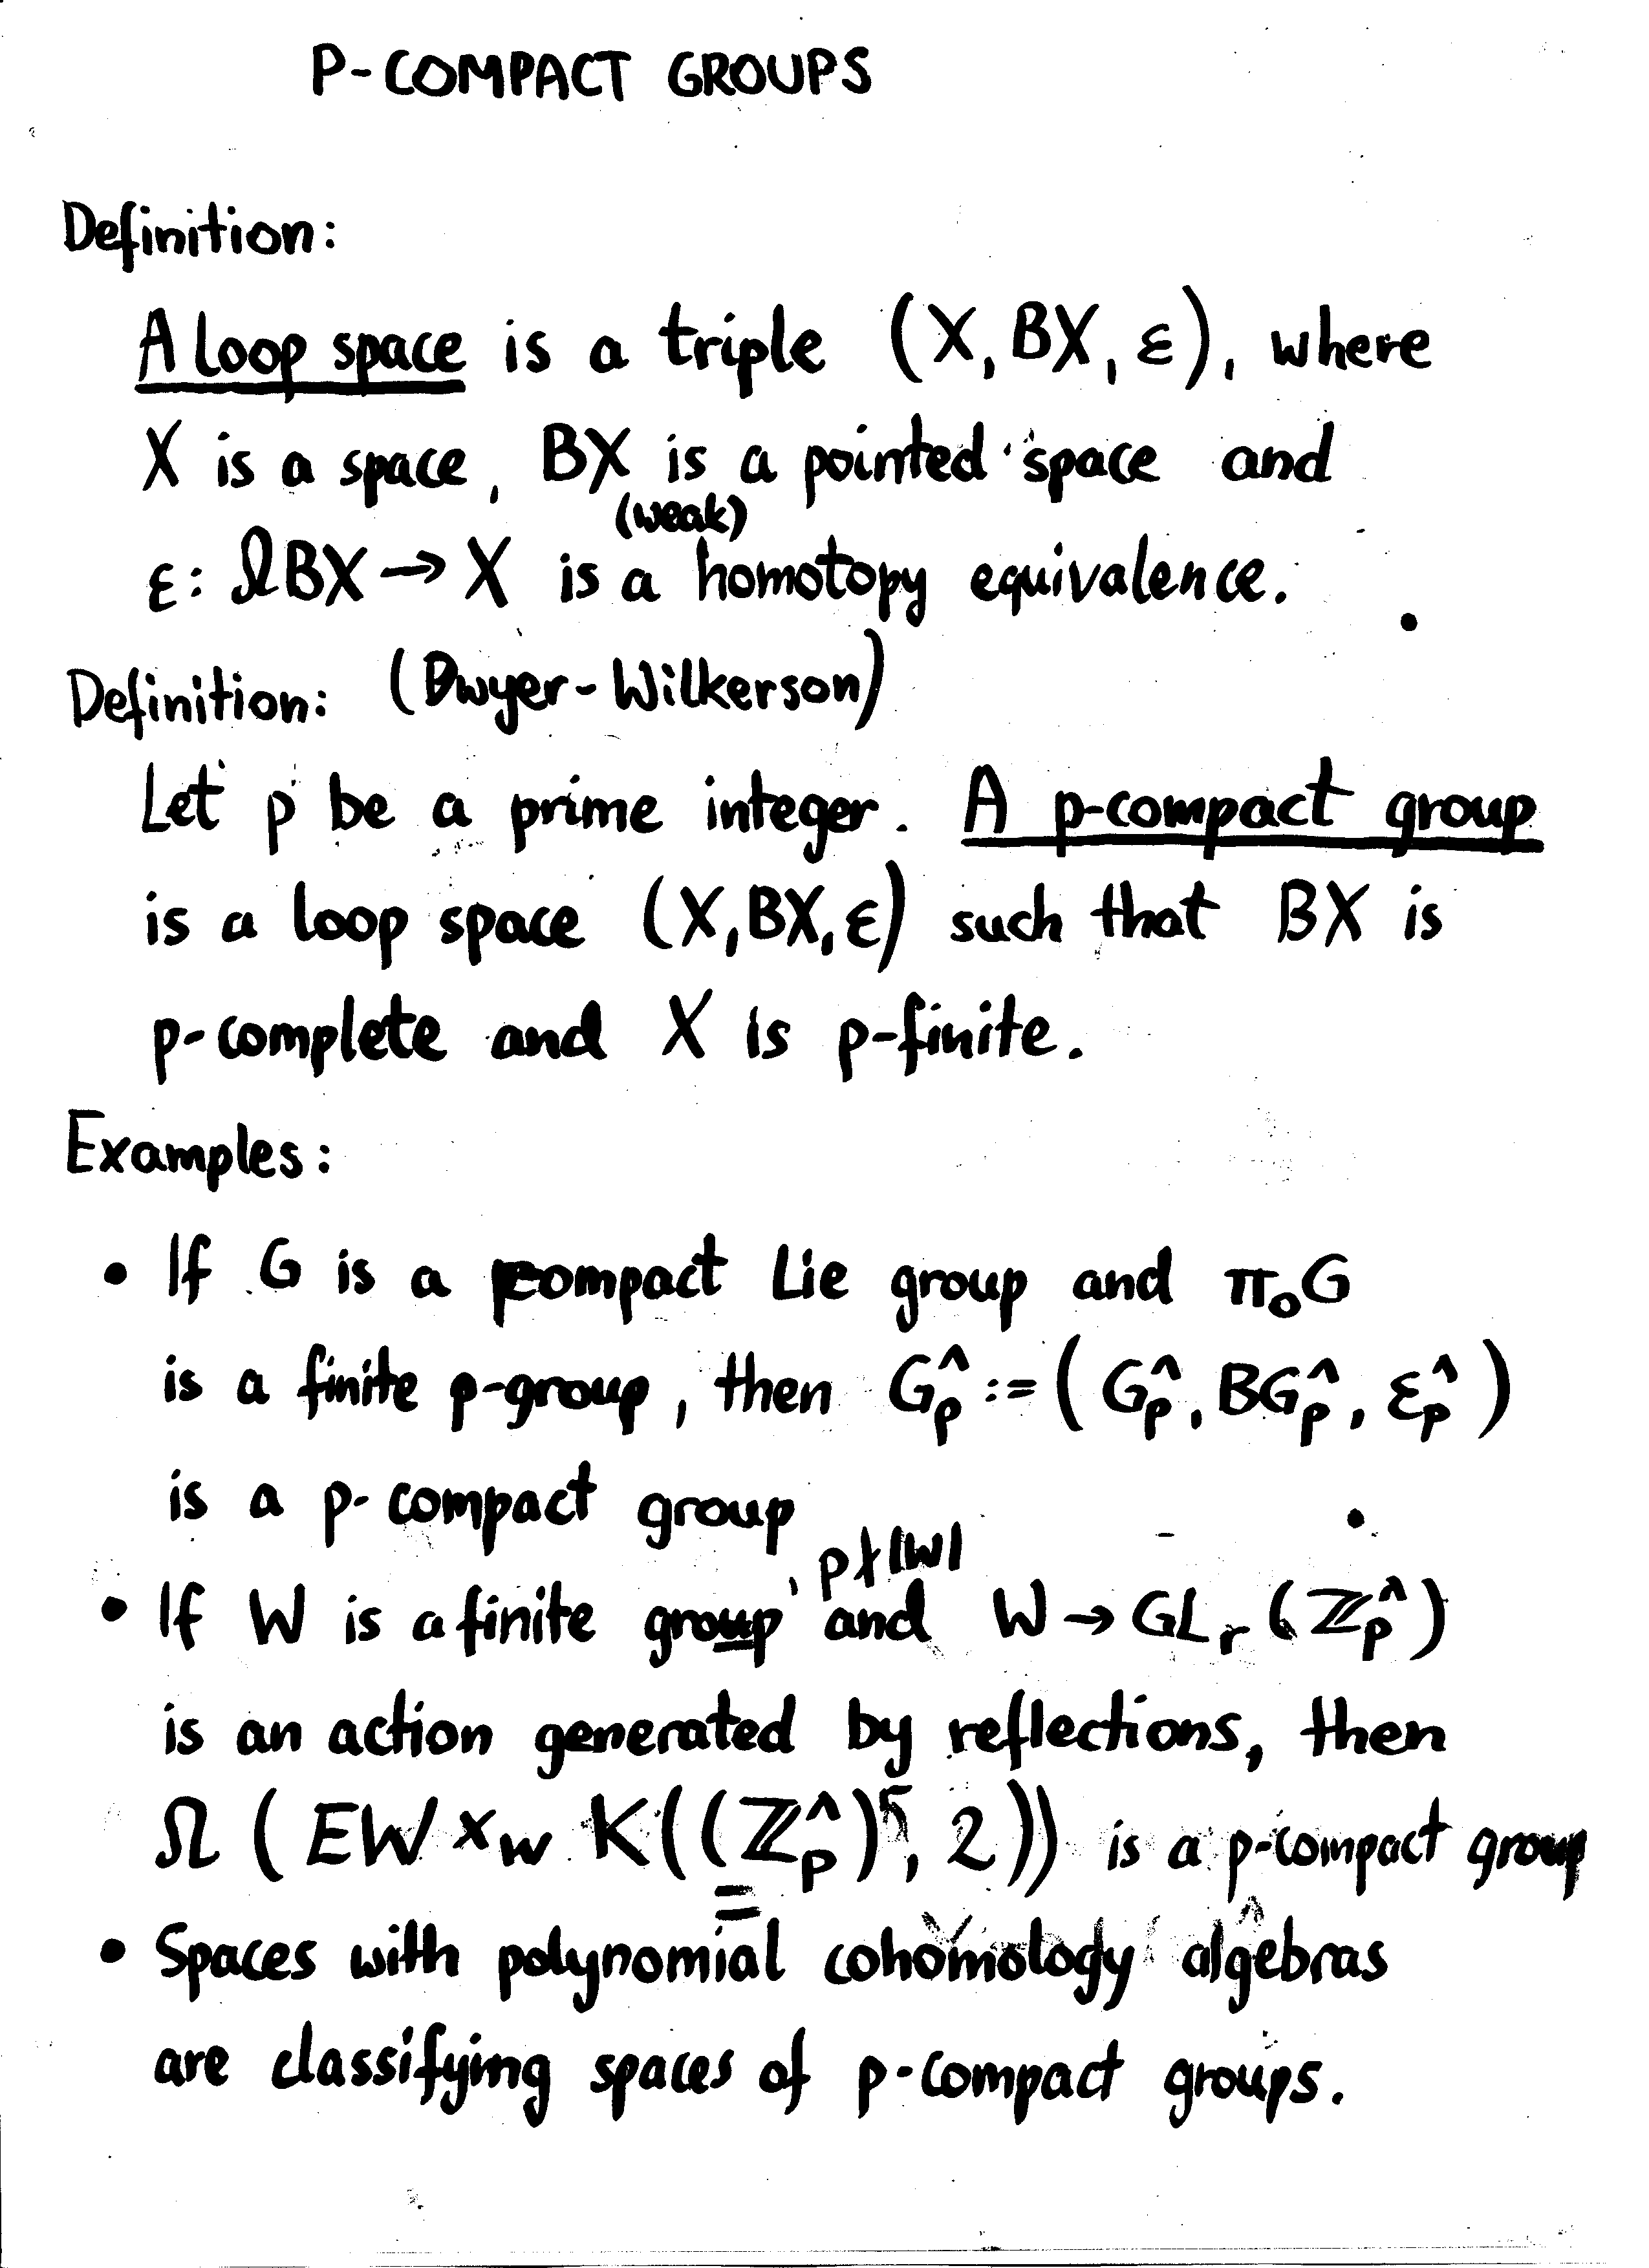 P-COMPACT GROUPS
Definition:
A loop space is a triple (X, BX, ε), where
X is a space, BX is a pointed space and
(weak)
ε: ΩBX → X is a homotopy equivalence.
Definition: (Dwyer-Wilkerson)
Let p be a prime integer. A p-compact group
is a loop space (X, BX, ε) such that BX is
p-complete and X is p-finite.
Examples:
• If G is a compact Lie group and π₀G
is a finite p-group, then G_p^ := (G_p^, BG_p^, ε_p^)
is a p-compact group
, p∤|W|
• If W is a finite group and W → GL_r(ℤ_p^)
is an action generated by reflections, then
Ω(EW ×_W K((ℤ_p^)^r, 2)) is a p-compact group
• Spaces with polynomial cohomology algebras
are classifying spaces of p-compact groups.